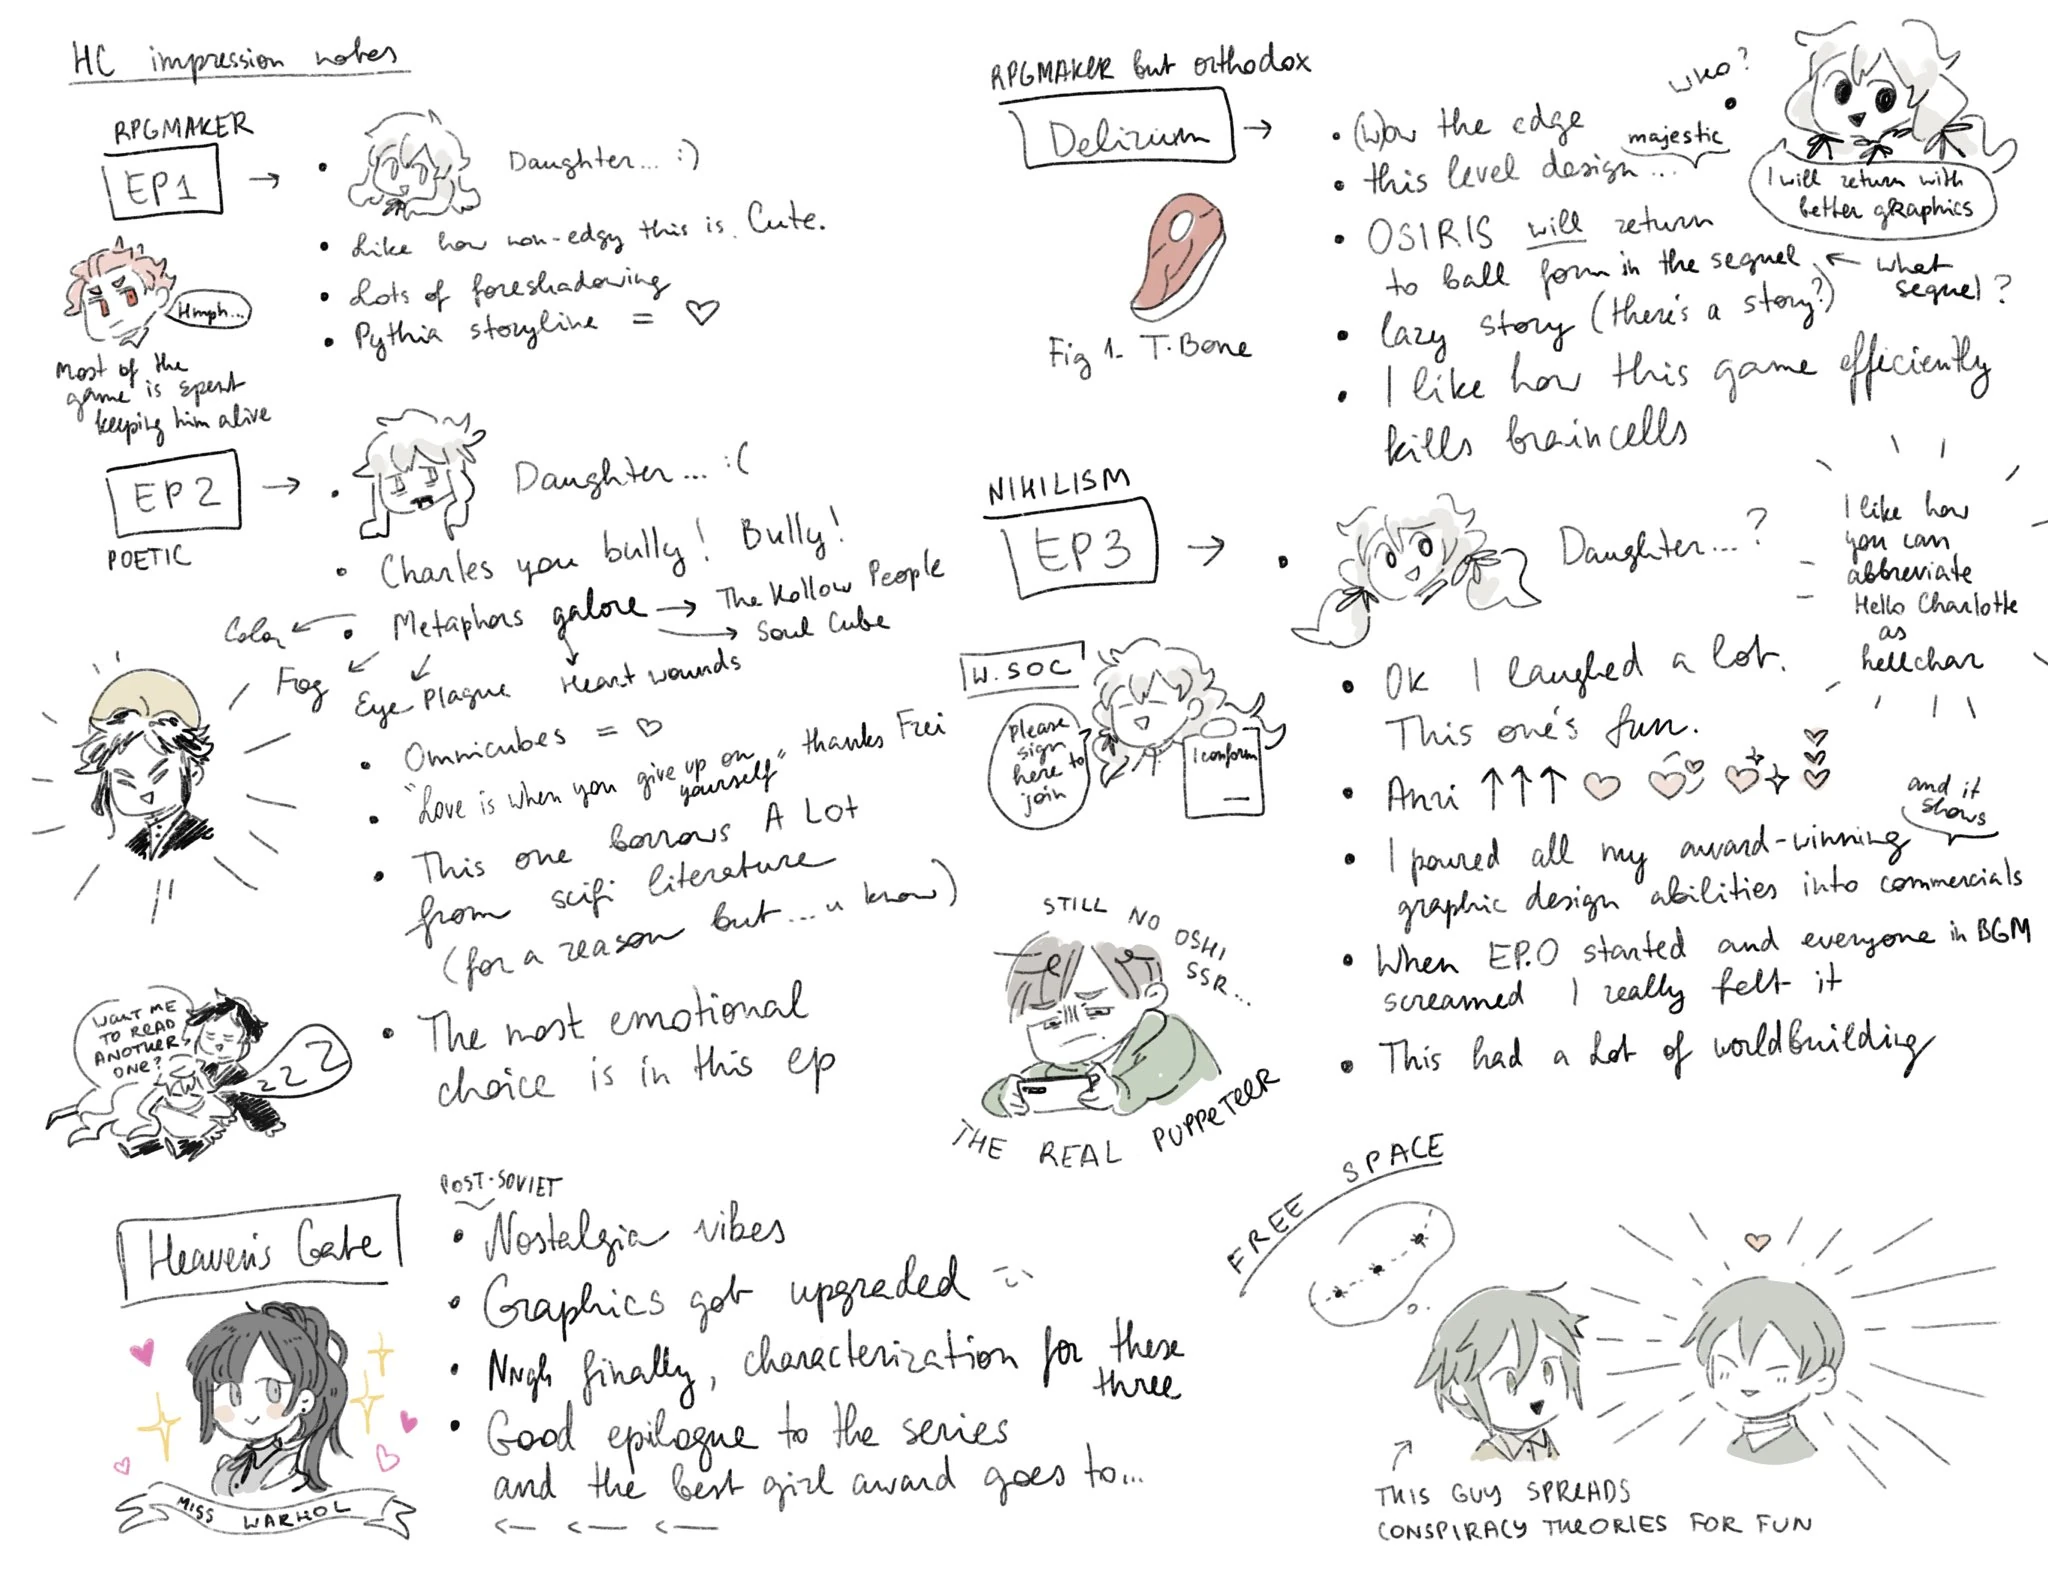 HC impression notes
RPGMAKER
EP1
Daughter... :)
Like how non-edgy this is. Cute.
Lots of foreshadowing
Pythia storyline = ♡
Hmph...
Most of the
game is spent
keeping him alive
EP2
POETIC
Daughter... :(
Charles you bully! Bully!
Metaphors galore → The Hollow People
Soul Cube
Color
Fog
Eye Plague
Heart wounds
Omnicubes = ♡
"Love is when you give up on
yourself" thanks Frei
This one borrows A LOT
from scifi literature
(for a reason but... u know)
The most emotional
choice is in this ep
WANT ME
TO READ
ANOTHER
ONE?
ZZZ
Heaven's Gate
POST-SOVIET
Nostalgia vibes
Graphics got upgraded
Nngh finally, characterization for these
three
Good epilogue to the series
and the best girl award goes to...
MISS WARHOL
RPGMAKER but orthodox
Delirium
Fig 1. T-Bone
(W)ow the edge
this level design...
majestic
OSIRIS will return
to ball form in the sequel
← what
sequel?
lazy story (there's a story?)
I like how this game efficiently
kills braincells
who?
I will return with
better graphics
NIHILISM
EP3
Daughter...?
I like how
you can
abbreviate
Hello Charlotte
as
hellchar
W. SOC
please
sign
here to
join
I conform
OK I laughed a lot.
This one's fun.
Anri ↑↑↑ ♡
I poured all my award-winning
graphic design abilities into commercials
and it
shows
When EP.0 started and everyone in BGM
screamed I really felt it
This had a lot of worldbuilding
STILL NO OSHI
SSR...
THE REAL PUPPETEER
FREE SPACE
THIS GUY SPREADS
CONSPIRACY THEORIES FOR FUN